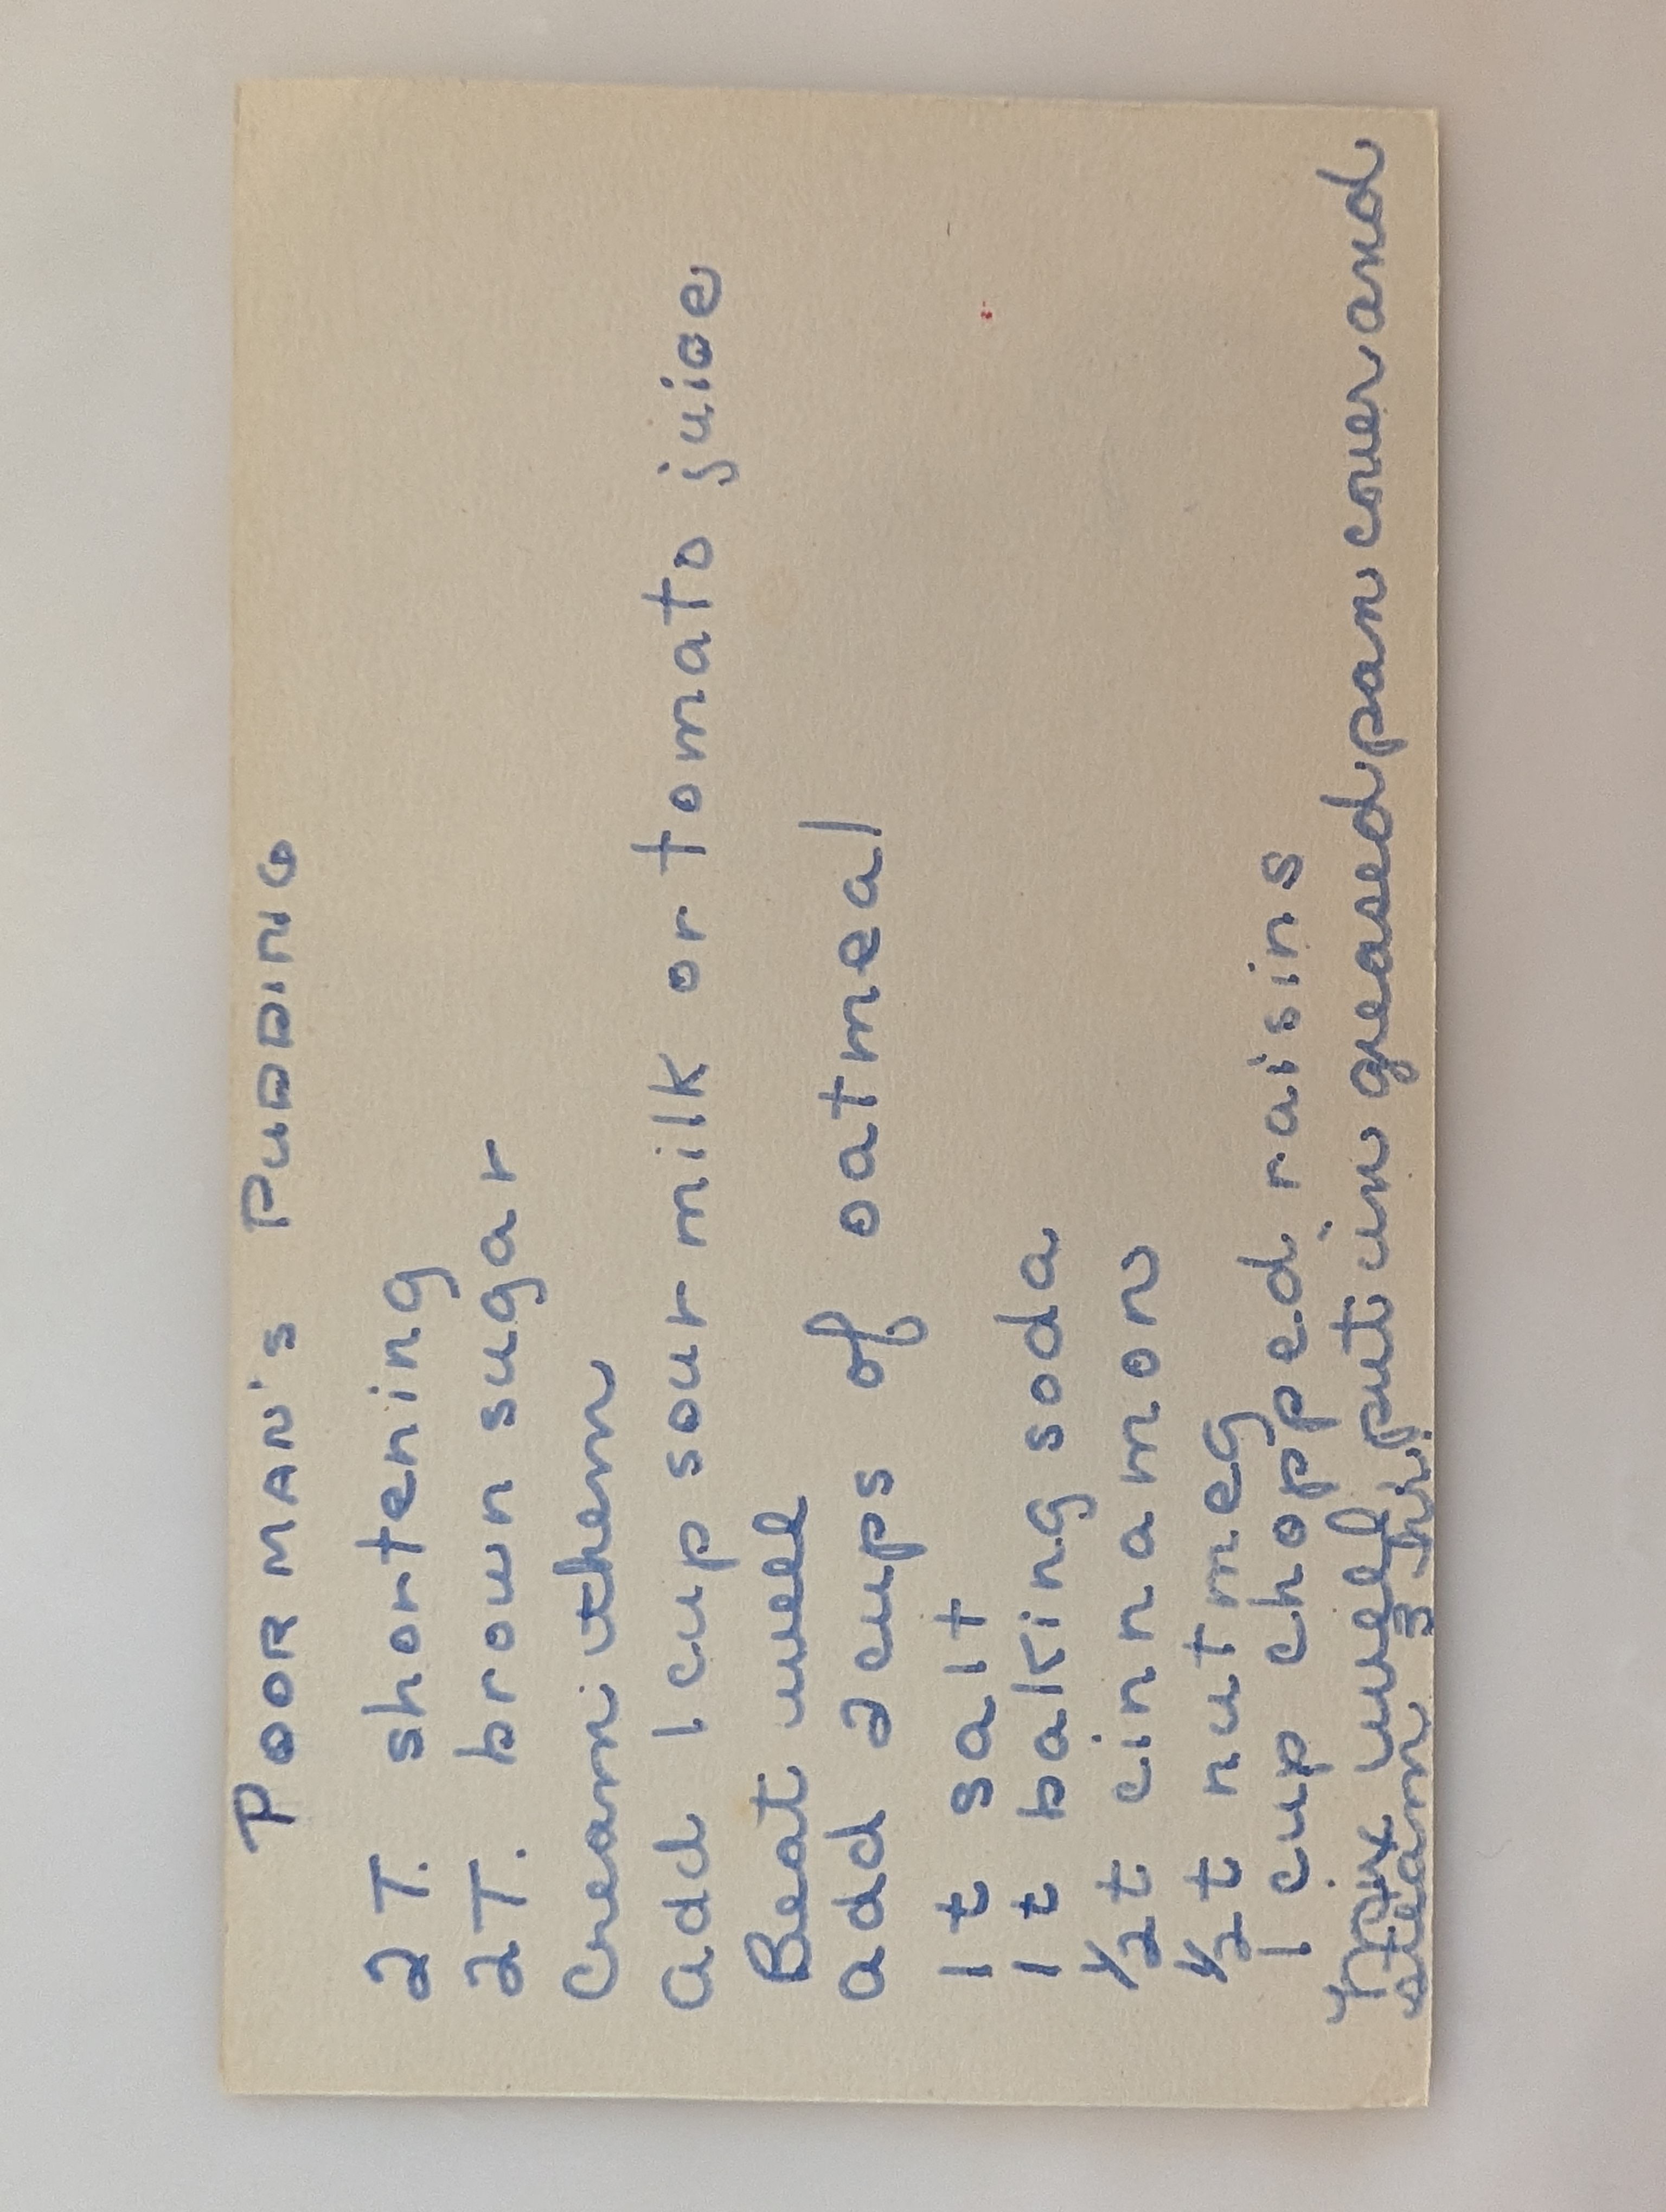 POOR MAN'S PUDDING
2 T. shortening
2 T. brown sugar
Cream them
add 1 cup sour milk or tomato juice
Beat well
add 2 cups of oatmeal
1 t salt
1 t baking soda
1/2 t cinnamon
1/2 t nutmeg
1 cup chopped raisins
Mix well put in greased pan cover and
steam 3 hr.